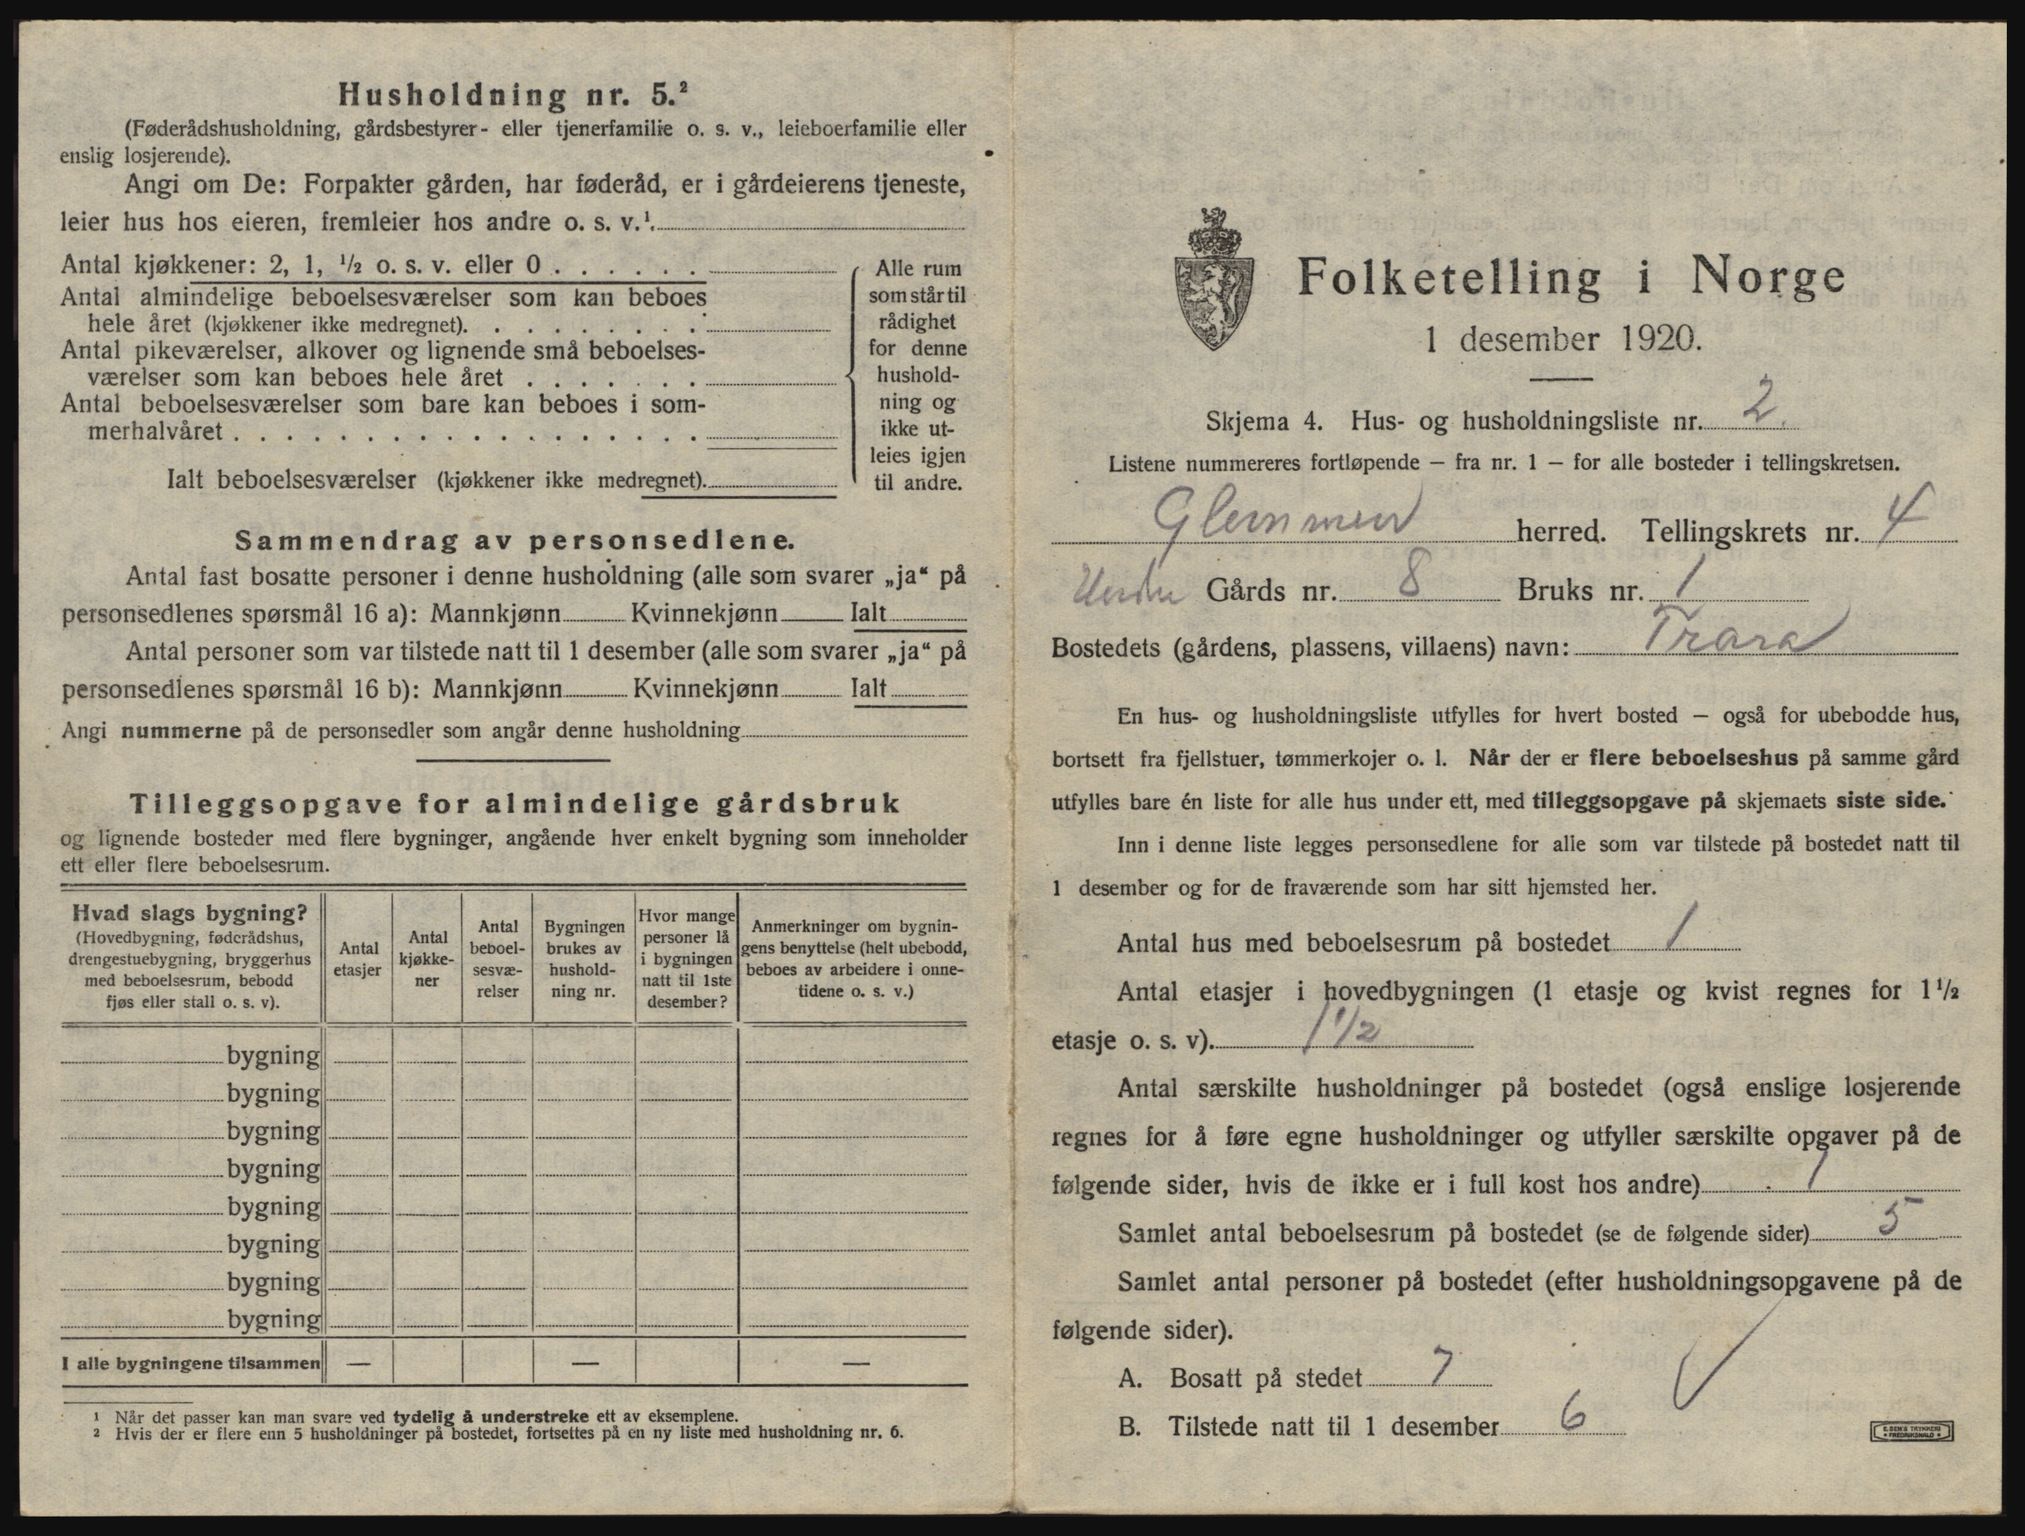 Husholdning nr. 5.²
(Føderådshusholdning, gårdsbestyrer- eller tjenerfamilie o. s. v., leieboerfamilie eller
enslig losjerende).
Angi om De: Forpakter gården, har føderåd, er i gårdeierens tjeneste,
leier hus hos eieren, fremleier hos andre o. s. v.¹.
Antal kjøkkener: 2, 1, ½ o. s. v. eller 0
Antal almindelige beboelsesværelser som kan beboes
hele året (kjøkkener ikke medregnet).
Antal pikeværelser, alkover og lignende små beboelses-
værelser som kan beboes hele året
Antal beboelsesværelser som bare kan beboes i som-
merhalvåret
Ialt beboelsesværelser (kjøkkener ikke medregnet).
Alle rum
som står til
rådighet
for denne
hushold-
ning og
ikke ut-
leies igjen
til andre.
Sammendrag av personsedlene.
Antal fast bosatte personer i denne husholdning (alle som svarer „ja“ på
personsedlenes spørsmål 16 a): Mannkjønn Kvinnekjønn Ialt
Antal personer som var tilstede natt til 1 desember (alle som svarer „ja“ på
personsedlenes spørsmål 16 b): Mannkjønn Kvinnekjønn Ialt
Angi nummerne på de personsedler som angår denne husholdning
Tilleggsopgave for almindelige gårdsbruk
og lignende bosteder med flere bygninger, angående hver enkelt bygning som inneholder
ett eller flere beboelsesrum.
Hvad slags bygning?
(Hovedbygning, føderådshus,
drengestuebygning, bryggerhus
med beboelsesrum, bebodd
fjøs eller stall o. s. v).
Antal
etasjer
Antal
kjøkke-
ner
Antal
beboel-
sesvæ-
relser
Bygningen
brukes av
hushold-
ning nr.
Hvor mange
personer lå
i bygningen
natt til 1ste
desember?
Anmerkninger om bygnin-
gens benyttelse (helt ubebodd,
beboes av arbeidere i onne-
tidene o. s. v.)
bygning
bygning
bygning
bygning
bygning
bygning
bygning
bygning
I alle bygningene tilsammen — — —
¹ Når det passer kan man svare ved tydelig å understreke ett av eksemplene.
² Hvis der er flere enn 5 husholdninger på bostedet, fortsettes på en ny liste med husholdning nr. 6.
Folketelling i Norge
1 desember 1920.
Skjema 4. Hus- og husholdningsliste nr. 2.
Listene nummereres fortløpende — fra nr. 1 — for alle bosteder i tellingskretsen.
Glemmen herred. Tellingskrets nr. 4
Gårds nr. 8 Bruks nr. 1
Bostedets (gårdens, plassens, villaens) navn: Trara
En hus- og husholdningsliste utfylles for hvert bosted — også for ubebodde hus,
bortsett fra fjellstuer, tømmerkojer o. l. Når der er flere beboelseshus på samme gård
utfylles bare én liste for alle hus under ett, med tilleggsopgave på skjemaets siste side.
Inn i denne liste legges personsedlene for alle som var tilstede på bostedet natt til
1 desember og for de fraværende som har sitt hjemsted her.
Antal hus med beboelsesrum på bostedet 1
Antal etasjer i hovedbygningen (1 etasje og kvist regnes for 1½
etasje o. s. v). 1½
Antal særskilte husholdninger på bostedet (også enslige losjerende
regnes for å føre egne husholdninger og utfyller særskilte opgaver på de
følgende sider, hvis de ikke er i full kost hos andre) 1
Samlet antal beboelsesrum på bostedet (se de følgende sider) 5
Samlet antal personer på bostedet (efter husholdningsopgavene på de
følgende sider).
A. Bosatt på stedet 7
B. Tilstede natt til 1 desember 6